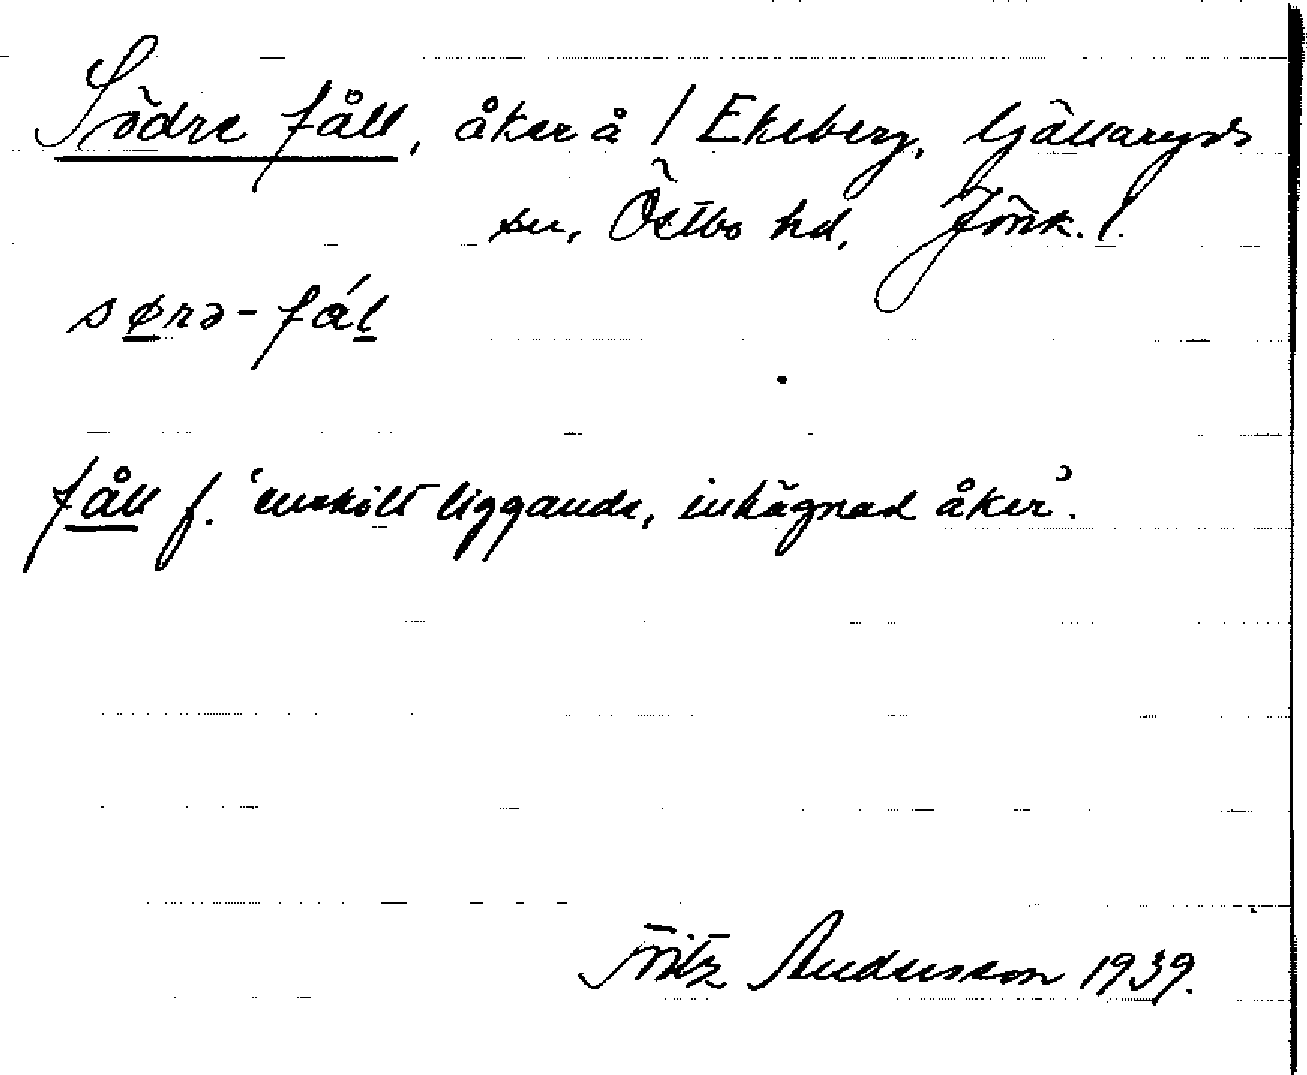 Södre fåll, åker å / Ekeberg, Gällaryds
sn, Östbo hd, Jönk. l.
sørə-fál
fåll f. 'enskilt liggande, inhägnad åker'.
Fritz Andersson 1939.